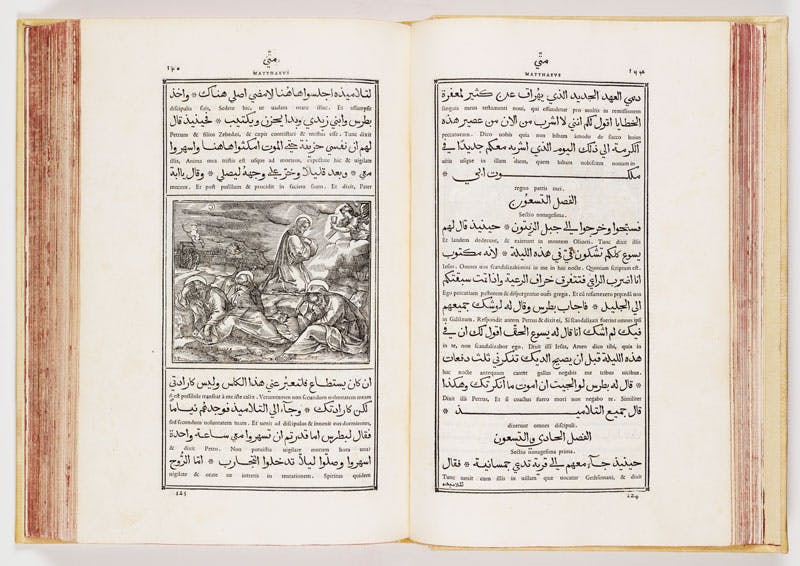 متّي
MATTHAEVS
دمي العهد الجديد الذي يهراف عن كثير لمغفرة
sanguis meus testamenti noui, qui effundetur pro multis in remissionem
الخطايا اقول لكم انني لا اشرب من الان من عصير هذه
peccatorum. Dico uobis quia non bibam amodo de succo huius
الكرمة الى ذلك اليوم الذي اشربه معكم جديدًا في
uitis usque in illum diem, quem bibam uobiscum nouum in
ملكوت ابي *
regno patris mei.
الفصل التسعون
Sectio nonagesima.
فسبّحوا وخرجوا الى جبل الزيتون * حينيذ قال لهم
Et laudem dederunt, & exierunt in montem Oliueti. Tunc dixit illis
يسوع كلكم تشكون في في هذه الليلة * لانه مكتوب
Iesus. Omnes uos scandalizabimini in me in hac nocte. Quoniam scriptum est.
انا اضرب الراعي فتتفرق خراف الرعية واذا قمت سبقتكم
Ego percutiam pastorem & dispergentur oues gregis. Et cum resurrexero precedā uos
الى الجليل * فاجاب بطرس وقال له لو شك جميعهم
in Galilæam. Respondit autem Petrus & dixit ei, Si scandalizati fuerint omnes ipsi
فيك لم اشك انا قال له يسوع الحق اقول لك ان في
in te, non scandalizabor ego. Dixit illi Iesus, Amen dico tibi, quia in
هذه الليلة قبل ان يصيح الديك تنكرني ثلث دفعات
hac nocte antequam cantet gallus negabis me tribus uicibus.
* قال له بطرس لو الجيت ان اموت ما انكرتك وهكذا
Dixit illi Petrus, Et si coactus fuero mori non negabo te. Similiter
قال جميع التلاميذ *
dixerunt omnes discipuli.
الفصل الحادي والتسعون
Sectio nonagesima prima.
حينيذ جآء معهم الى قرية تدعي جسمانية * فقال
Tunc uenit cum illis in uillam quæ uocatur Gethsemani, & dixit
لتلاميذه
124
١٢٥
متّي
MATTHAEVS
لتلاميذه اجلسوا هاهنا لامضي اصلي هناك * واخذ
discipulis suis, Sedete hic, ut uadam orare illuc. Et assumpsit
بطرس وابني زبدي وبدا يحزن ويكتيب * فحينيذ قال
Petrum & filios Zebedæi, & cœpit contristari & mœstus esse. Tunc dixit
لهم ان نفسي حزينة حتى الموت امكثوا هاهنا واسهروا
illis, Anima mea tristis est usque ad mortem, expectate hic & uigilate
معي * وبعد قليلاً وخرّ على وجهه ليصلي * وقال يا ابة
mecum. Et post pusillum & procidit in faciem suam. Et dixit, Pater
ان كان يستطاع فلتعبر عني هذا الكاس وليس كارادتي
si est possibile transeat à me iste calix. Veruntamen non secundum uoluntatem meam
لكن كارادتك * وجآء الى التلاميذ فوجدهم نيامًا
sed secundum uoluntatem tuam. Et uenit ad discipulos & inuenit eos dormientes,
فقال لبطرس اما قدرتم ان تسهروا معي ساعة واحدة
& dixit Petro. Non potuistis uigilare mecum hora una?
اسهروا وصلوا ليلاً تدخلوا التجارب * امّا الرّوح
uigilate & orate ne intretis in tentationem. Spiritus quidem
125